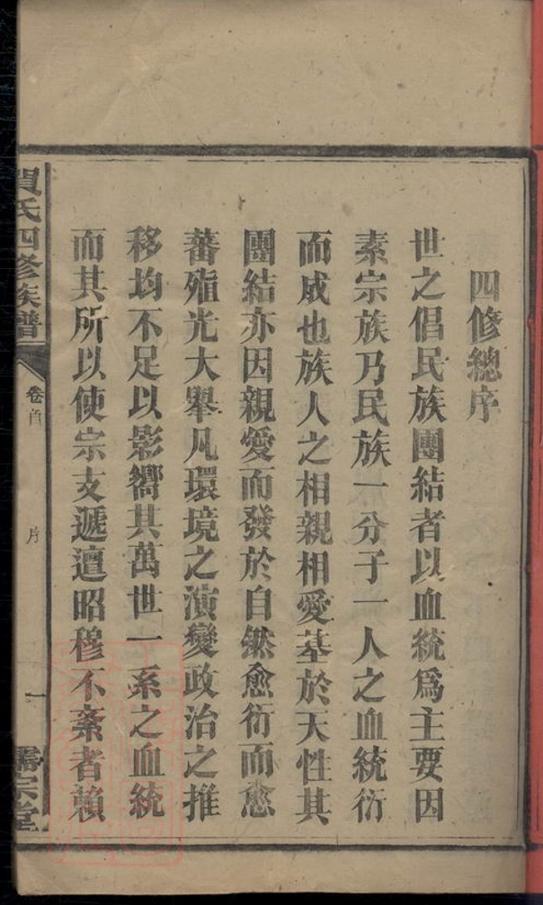 四修總序
世之倡民族團結者以血統爲主要因
素宗族乃民族一分子一人之血統衍
而成也族人之相親相愛基於天性其
團結亦因親愛而發於自然愈衍而愈
蕃殖光大舉凡環境之演變政治之推
移均不足以影嚮其萬世一系之血統
而其所以使宗支遞邅昭穆不紊者賴
賀氏四修族譜
卷首
序
一
儒宗堂